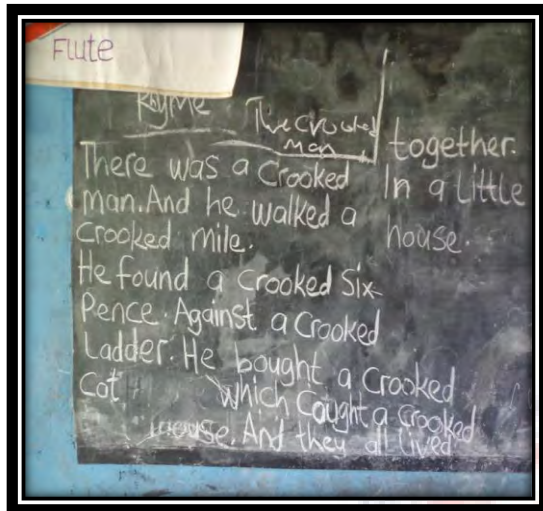 Flute
Rhyme The Crooked
Man
There was a Crooked
man. And he walked a
Crooked mile.
He found a Crooked Six-
Pence. Against a Crooked
Ladder. He bought a Crooked
Cat which Cought a Crooked
mouse. And they all lived
together.
In a Little
house.